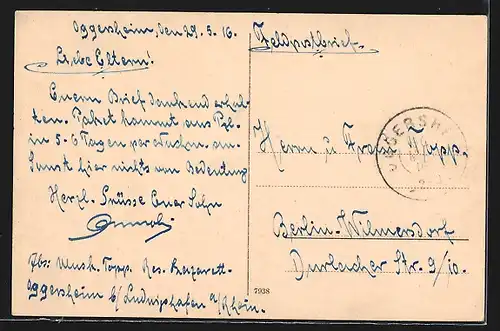 Oggersheim, den 29.5.16.
Liebe Eltern!
Euern Brief dankend erhal-
ten. Paket kommt aus
in 5-6 Tagen per an.
Sonst hier nichts von Bedeutung
Herzl. Grüsse Euer Sohn
Abs: Musk. Topp. Res. Lazarett
Oggersheim b/ Ludwigshafen a/Rhein.
Feldpostbrief.
Herrn u Frau Topp.
Berlin-Wilmersdorf
Durlacher Str. 9/10.
OGGERSHEIM
7938